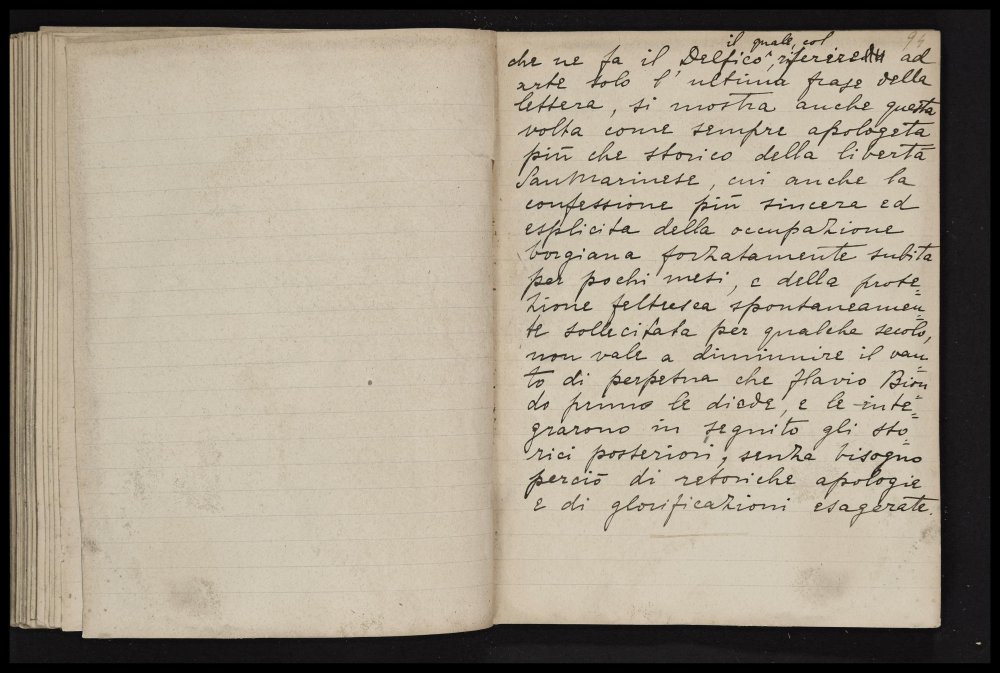 94
il quale, col
che ne fa il Delfico, riferire ad
arte solo l'ultima frase della
lettera, si mostra anche questa
volta come sempre apologeta
più che storico della libertà
SanMarinese, cui anche la
confessione più sincera ed
esplicita della occupazione
borgiana forzatamente subita
per pochi mesi, e della prote=
zione feltresca spontaneamen=
te sollecitata per qualche secolo,
non vale a diminuire il van=
to di perpetua che Flavio Bion=
do primo le diede, e le inte=
grarono in seguito gli sto=
rici posteriori, senza bisogno
perciò di retoriche apologie
e di glorificazioni esagerate.